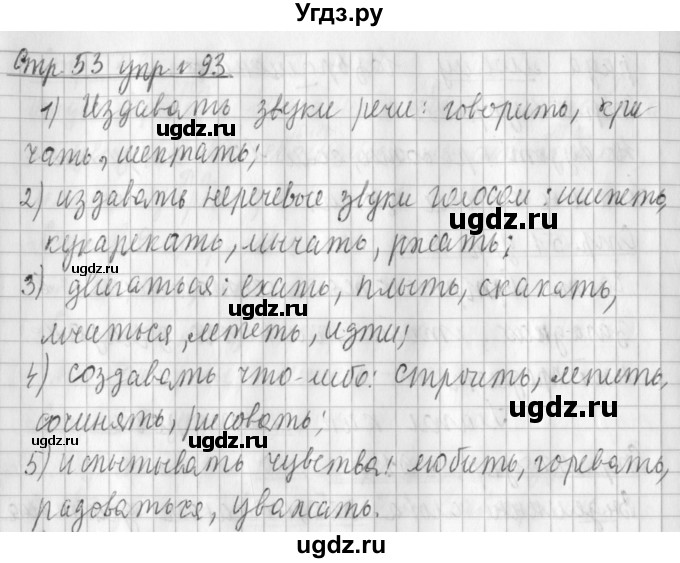 Угдз.ру
Стр 53 упр № 93
1) Издавать звуки речи: говорить, кри-
ugdz.ru ugdz.ru
чать, шептать;
2) издавать неречевые звуки голосом: шипеть,
ugdz.ru
кукарекать, мычать, ржать;
ugdz.ru
3) двигаться: ехать, плыть, скакать,
ugdz.ru
мчаться, лететь, идти;
4) создавать что-либо: строить, лепить,
ugdz.ru ugdz.ru
сочинять, рисовать;
ugdz.ru
5) испытывать чувства: любить, горевать,
ugdz.ru
радоваться, уважать.
ugdz.ru